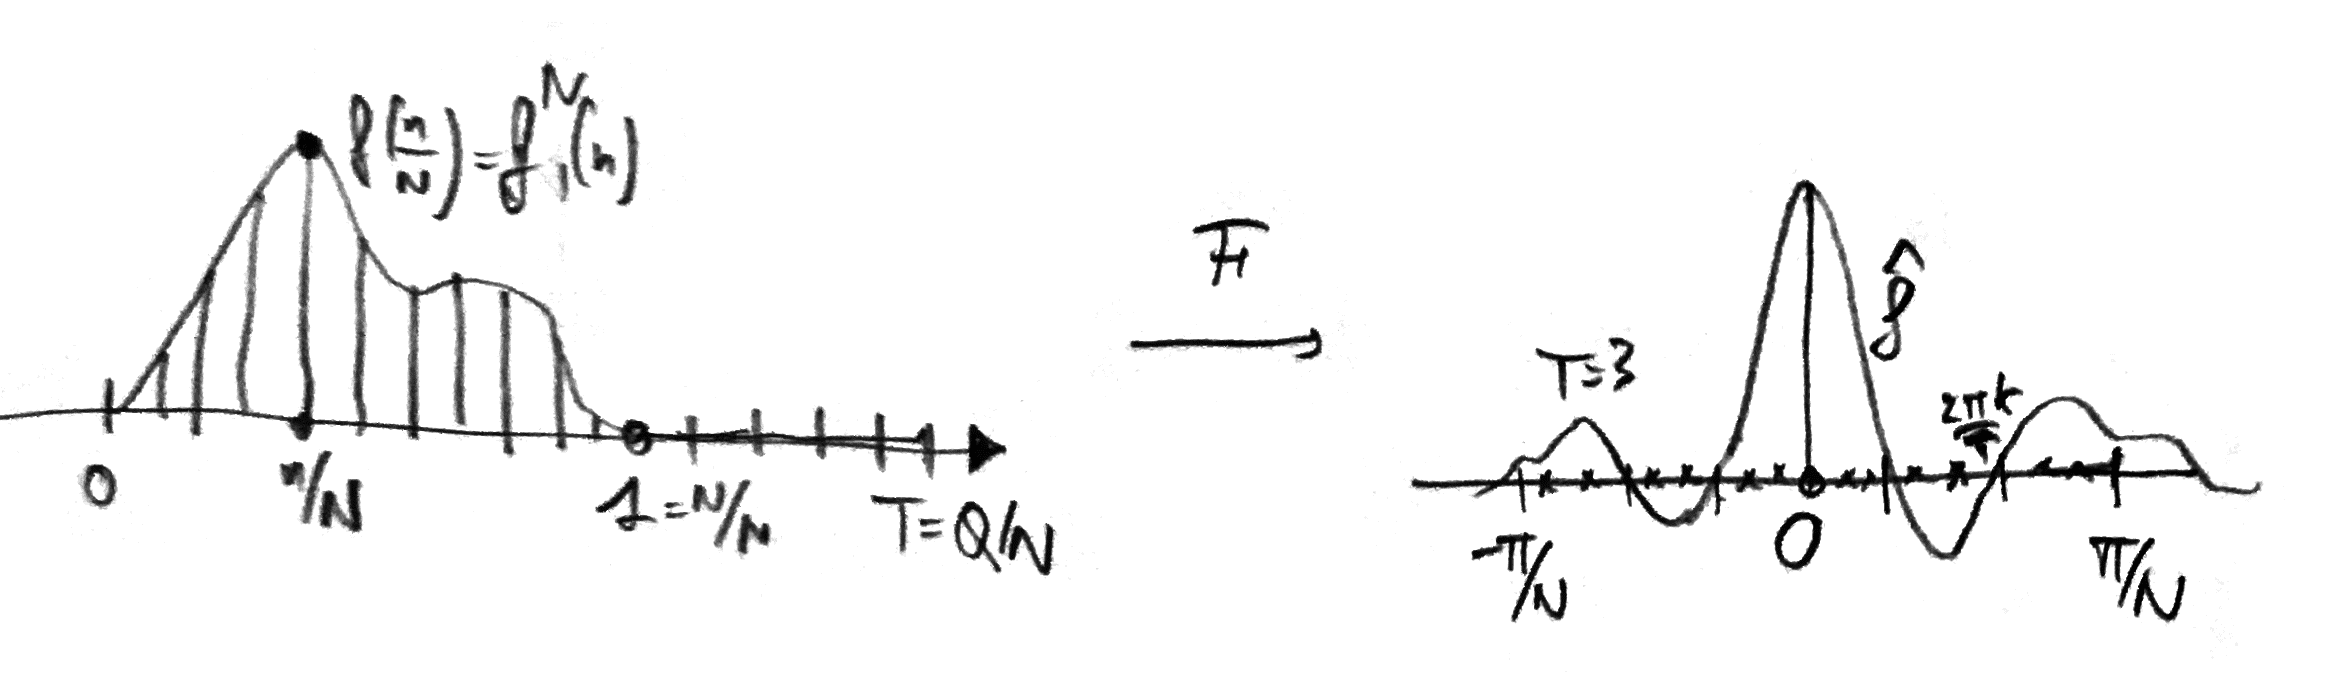 f(n/N) = f₁ᴺ(n)
0
n/N
1 = N/N
T = Q/N
F
f̂
T=3
2πk/T
-π/N
0
π/N